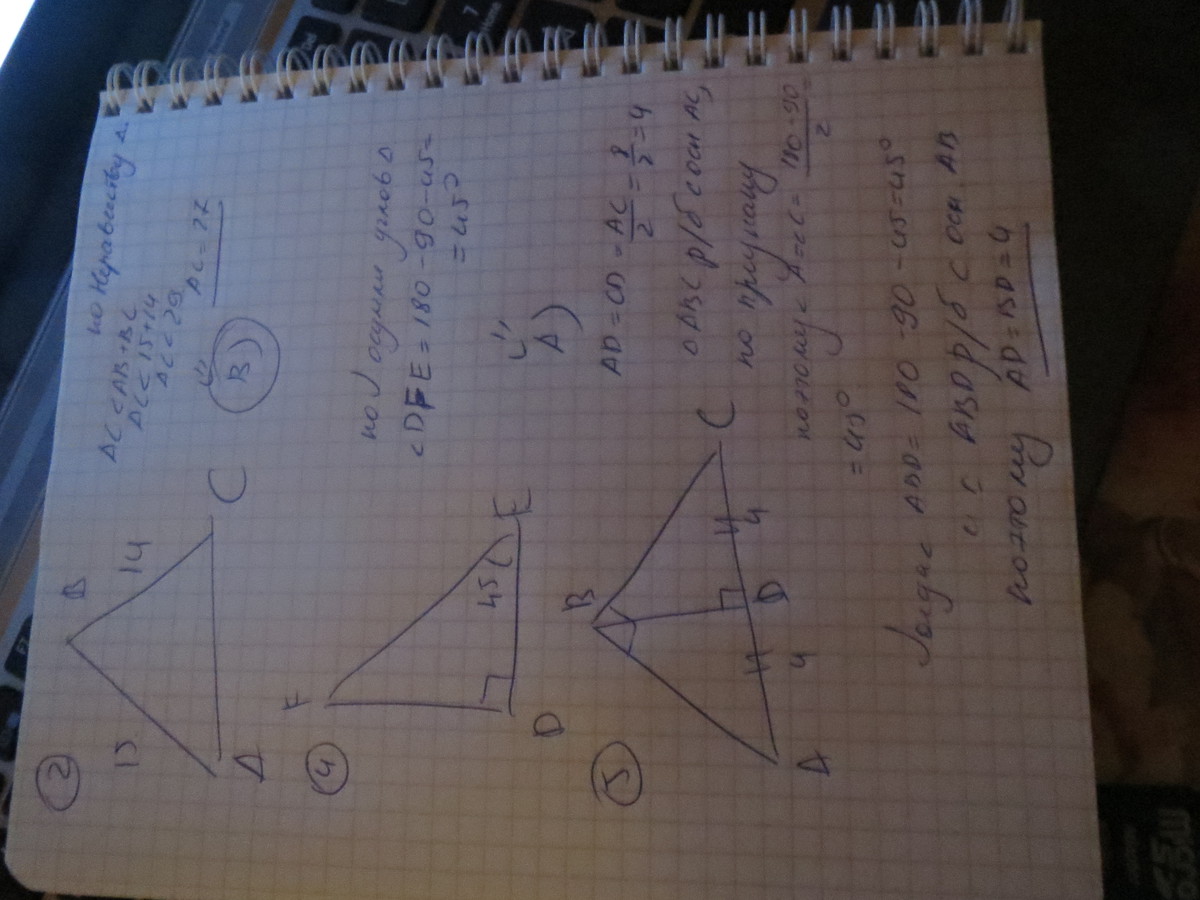 2
B
15
14
A
C
по неравенству Δ.
AC < AB + BC
AC < 15+14
AC < 29
AC = 27
B)
4
F
45
D
E
по ... сумми углов Δ
< DFE = 180 - 90 - 45 =
= 45°
A)
5
B
A
4
D
4
C
AD = CD = AC/2 = 8/2 = 4
Δ ABC р/б с осн AC,
по признаку
поэтому < A = < C = 180-90/2 =
= 45°
< ABD = 180 - 90 - 45 = 45°
и Δ ABD р/б с осн. AB
поэтому AD = BD = 4